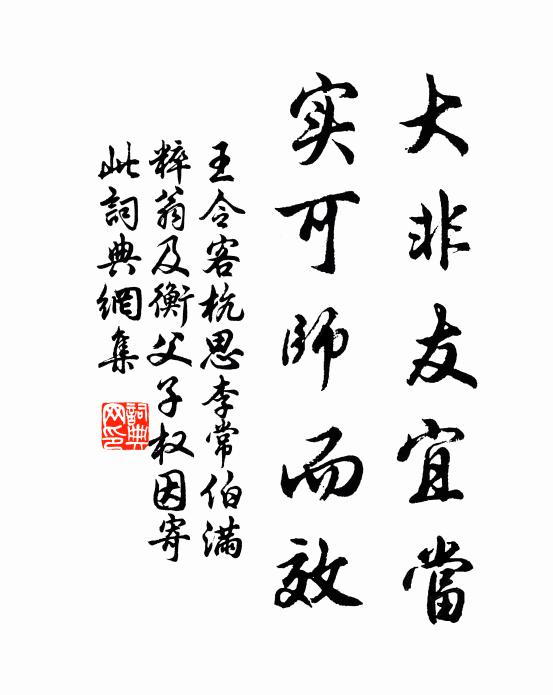 大非友宜當
实可師而效
王令客杭思李常伯滿
粹翁及衡父子权因寄
此詞典網集
詞典网印